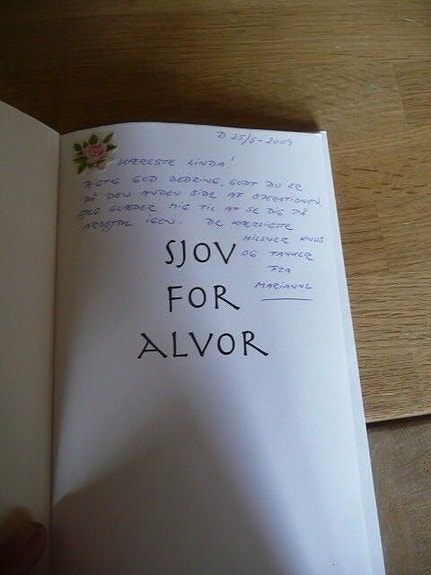 D 25/5-2009
KÆRESTE LINDA!
RIGTIG GOD BEDRING, GODT DU ER
PÅ DEN ANDEN SIDE AF OPERATIONEN
JEG GLÆDER MIG TIL AT SE DIG PÅ
ARBEJDE IGEN. DE KÆRLIGSTE
HILSNER KNUS
OG TANKER
FRA
MARIANNE
SJOV
FOR
ALVOR